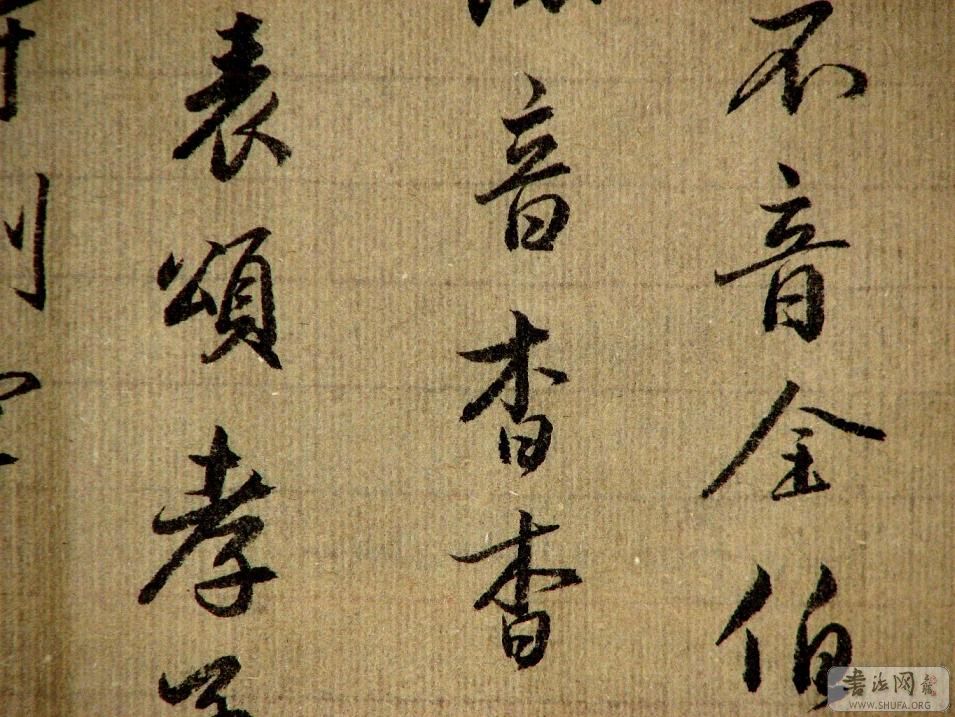 不音金伯
音杳杳
表頌孝
書法网
WWW.SHUFA.ORG